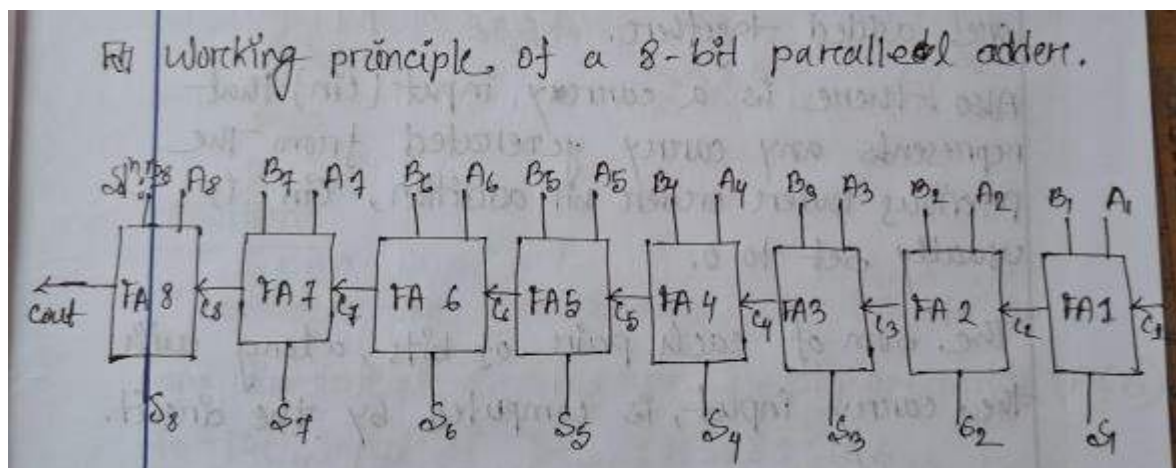 Working principle of a 8-bit parallel adder.
B8 A8 B7 A7 B6 A6 B5 A5 B4 A4 B3 A3 B2 A2 B1 A1
Cout FA 8 C8 FA 7 C7 FA 6 C6 FA 5 C5 FA 4 C4 FA3 C3 FA 2 C2 FA 1 C1
S8 S7 S6 S5 S4 S3 S2 S1